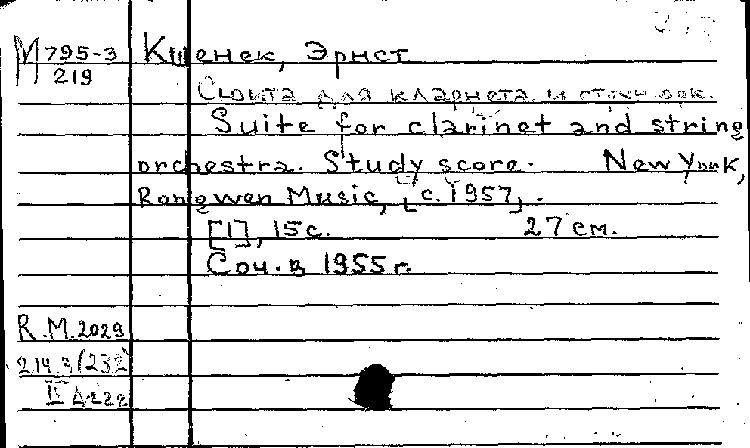 М 795-3
219
Кшенек, Эрнст
Сюита для кларнета и струн. орк.
Suite for clarinet and string
orchestra. Study score. New York,
Rongwen Music, [c. 1957].
[1], 15 с. 27 см.
Соч. в 1955 г.
R.M. 2029